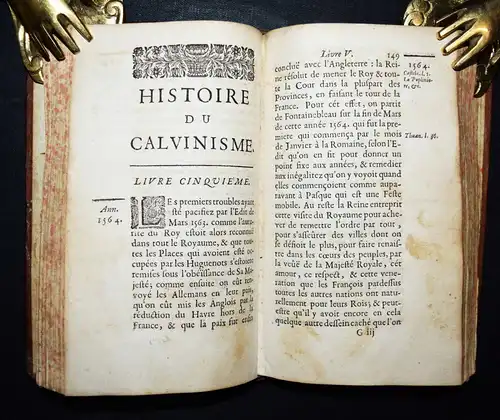 HISTOIRE
DU
CALVINISME.
LIVRE CINQUIEME.
Ann.
1564.
LEs premiers troubles ayant
esté pacifiez par l'Edit de
Mars 1563. comme l'auto-
rité du Roy estoit alors reconnuë
dans tout le Royaume, & que toutes
les Places qui avoient esté oc-
cupées par les Huguenots s'estoient
remises sous l'obéïssance de Sa Ma-
jesté; comme ensuite on eût ren-
voyé les Allemans en leur païs,
qu'on eût mis les Anglois par la
réduction du Havre hors de la
France, & que la paix fut enfin
Livre V. 149
concluë avec l'Angleterre: la Rei-
ne résolut de mener le Roy & tou-
te la Cour dans la pluspart des
Provinces, en faisant le tour de la
France. Pour cét effet, on partit
de Fontainebleau sur la fin de Mars
de cette année 1564. qui fut la pre-
miere qui commença par le mois
de Janvier à la Romaine, selon l'E-
dit qu'on en fit pour donner un
point fixe aux années, & remedier
aux inégalitez qu'on y voyoit quand
elles commençoient comme aupa-
ravant à Pasque qui est une Feste
mobile. Au reste la Reine entreprit
cette visite du Royaume pour ache-
ver de remettre l'ordre par tout;
pour s'asseûrer des villes dont on
se défioit le plus, pour faire renais-
tre dans les cœurs des peuples, par
la veuë de la Majesté Royale, cét
amour, ce respect, & cette vene-
ration que les François pardessus
toutes les autres nations ont natu-
rellement pour leurs Rois; & peut-
estre qu'il y avoit encore en cela
quelque autre dessein caché que l'on
G iij
1564.
Casteln. l. 5.
La Popelinie-
re, &c.
Thuan. l. 36.